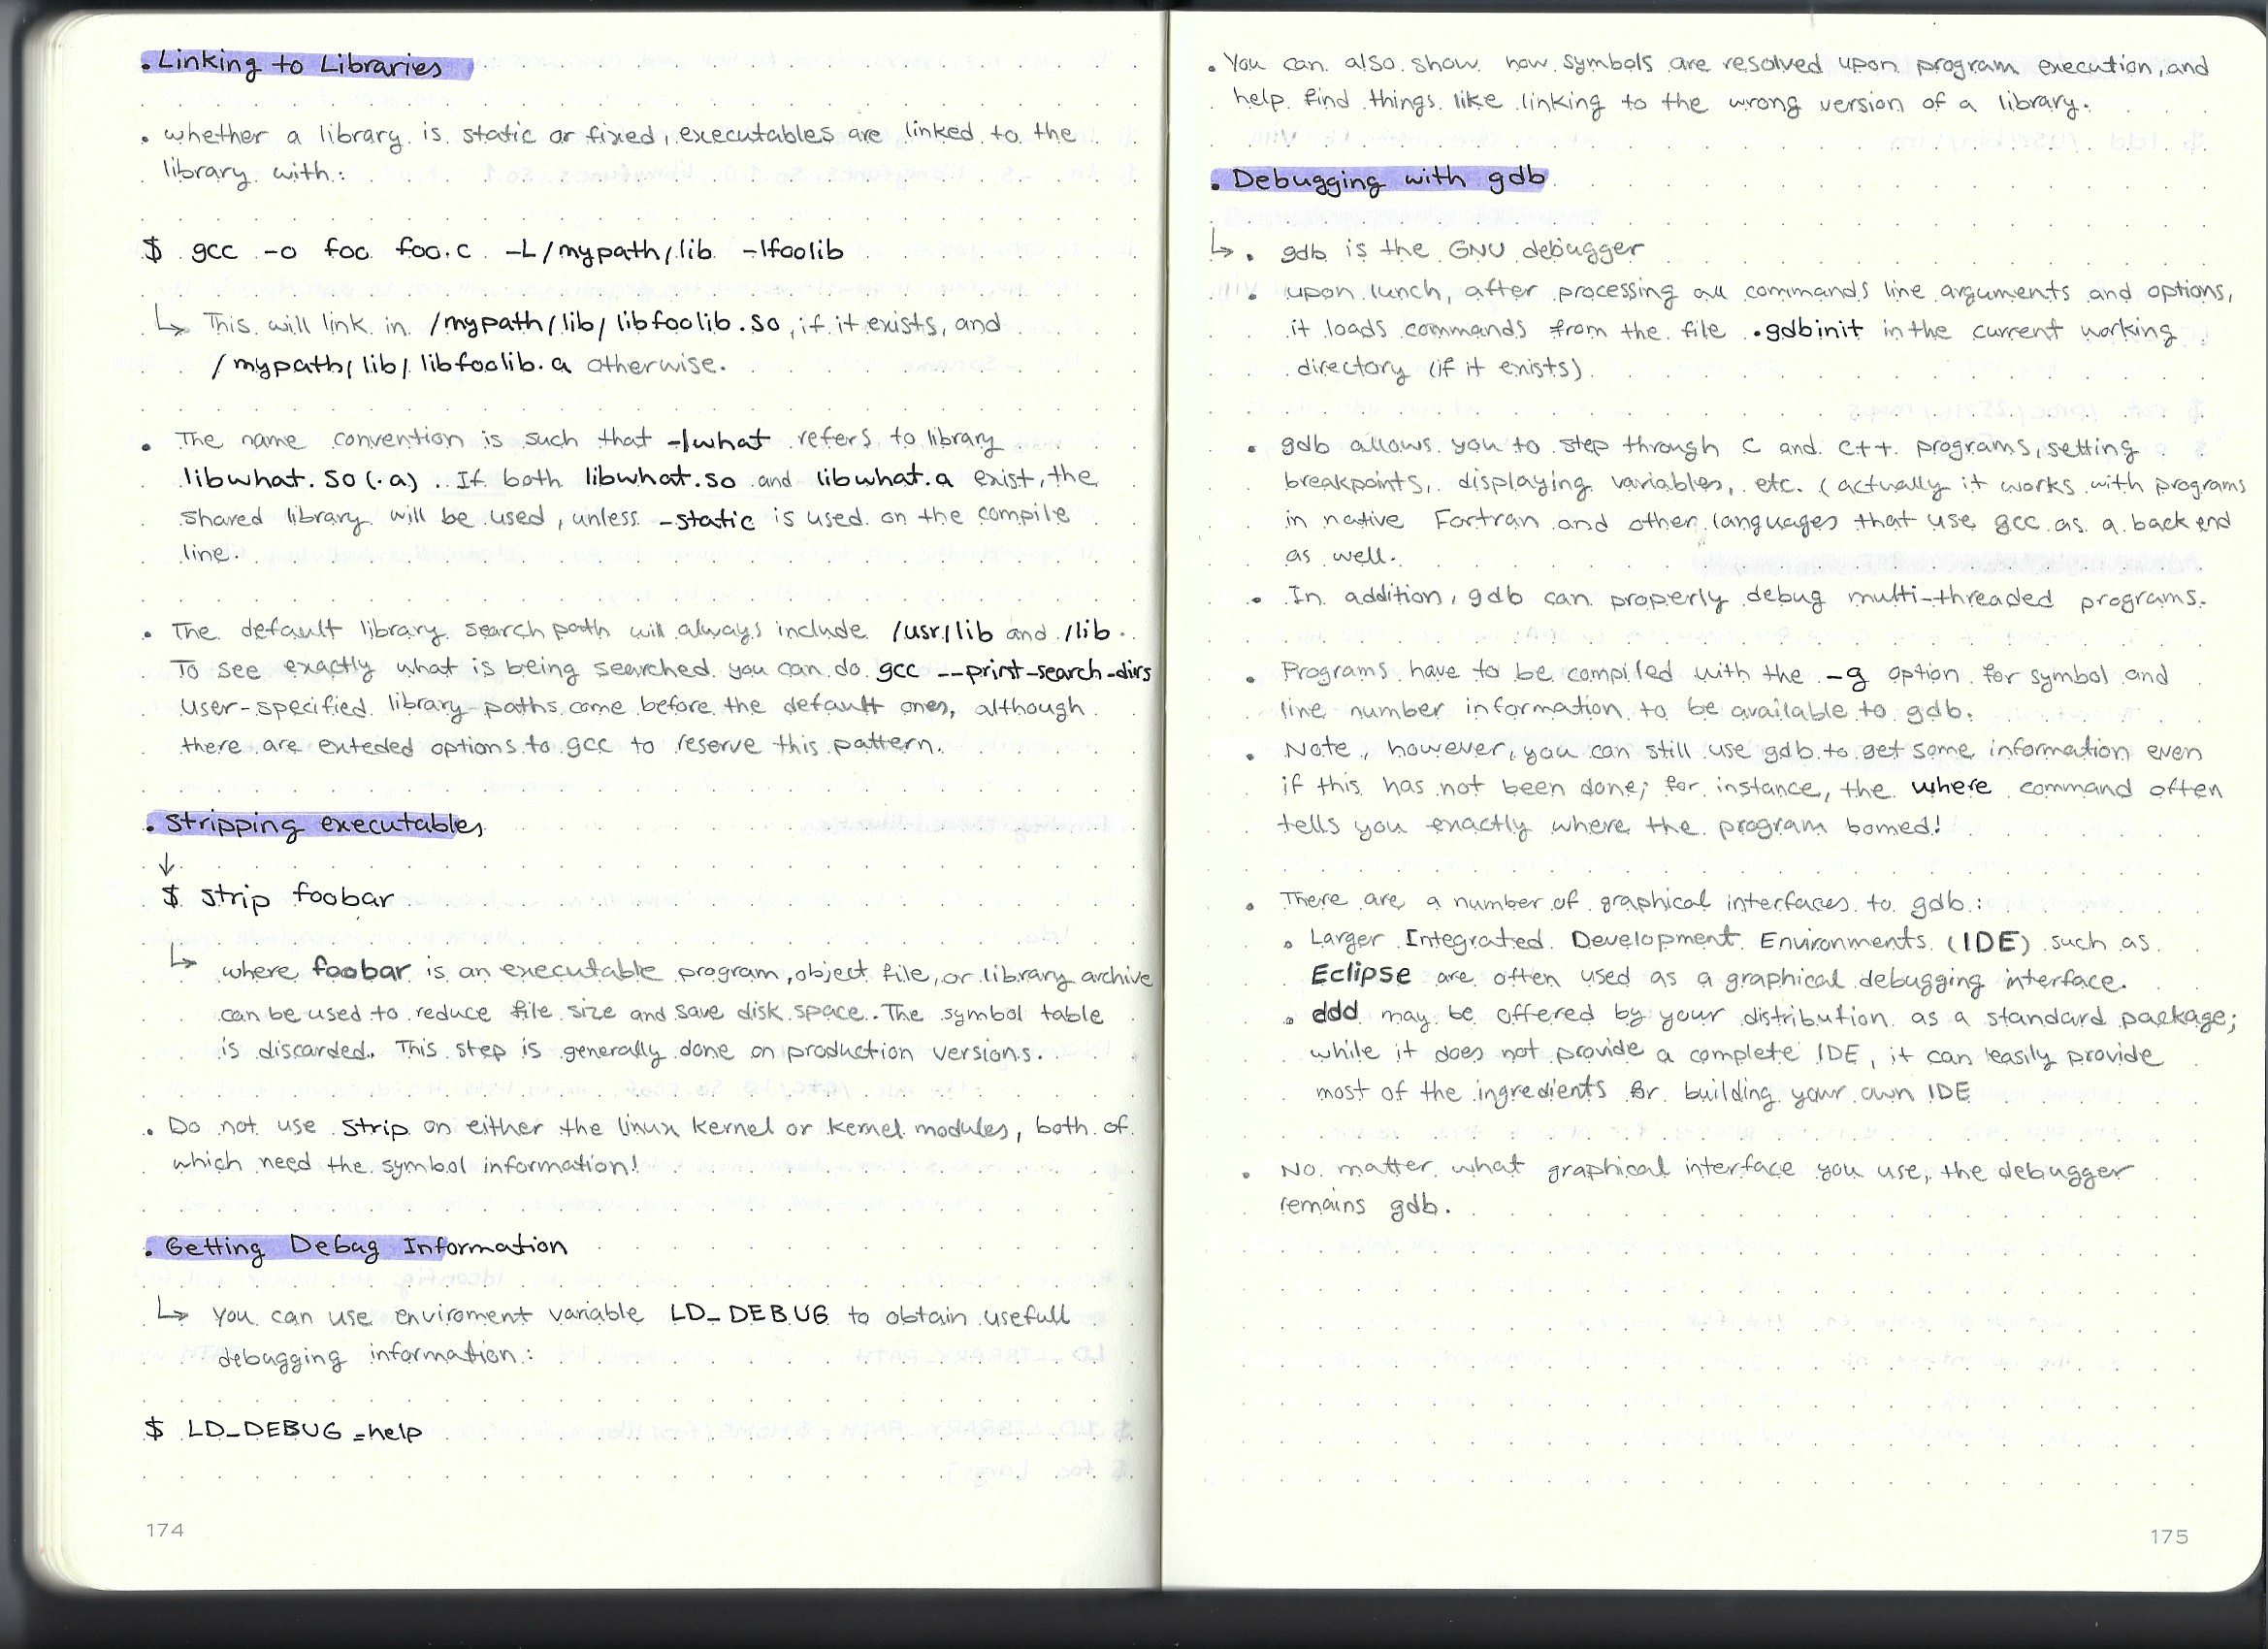 . Linking to Libraries
. whether a library is static or fixed, executables are linked to the
library with:
$ gcc -o foo foo.c -L/mypath/lib -lfoolib
↳ This will link in /mypath/lib/libfoolib.so, if it exists, and
/mypath/lib/libfoolib.a otherwise.
. The name convention is such that -lwhat refers to library
libwhat.so(.a). If both libwhat.so and libwhat.a exist, the
shared library will be used, unless -static is used on the compile
line.
. The default library search path will always include /usr/lib and /lib.
To see exactly what is being searched you can do gcc --print-search-dirs
User-specified library paths come before the default ones, although
there are exteded options to gcc to reserve this pattern.
. Stripping executables
↓
$ strip foobar
↳ where foobar is an executable program, object file, or library archive
can be used to reduce file size and save disk space. The symbol table
is discarded. This step is generally done on production versions.
. Do not use strip on either the linux kernel or kernel modules, both of
which need the symbol information!
. Getting Debug Information
↳ You can use enviroment variable LD_DEBUG to obtain usefull
debagging information:
$ LD_DEBUG=help
174
. You can also show how symbols are resolved upon program execution, and
help find things like linking to the wrong version of a library.
. Debugging with gdb
↳ . gdb is the GNU debugger
. upon lunch, after processing all commands line arguments and options,
it loads commands from the file .gdbinit in the current working
directory (if it exists).
. gdb allows you to step through C and C++ programs, setting
breakpoints, displaying variables, etc. (actually it works with programs
in native Fortran and other languages that use gcc as a back end
as well.
. In addition, gdb can properly debug multi-threaded programs.
. Programs have to be compiled with the -g option for symbol and
line number information to be available to gdb.
. Note, however, you can still use gdb to get some information even
if this has not been done; for instance, the where command often
tells you exactly where the program bomed!
. There are a number of graphical interfaces to gdb:
. Larger Integrated Development Environments (IDE) such as
Eclipse are often used as a graphical debugging interface.
. ddd may be offered by your distribution as a standard package;
while it does not provide a complete IDE, it can easily provide
most of the ingredients for building your own IDE
. No matter what graphical interface you use, the debugger
remains gdb.
175